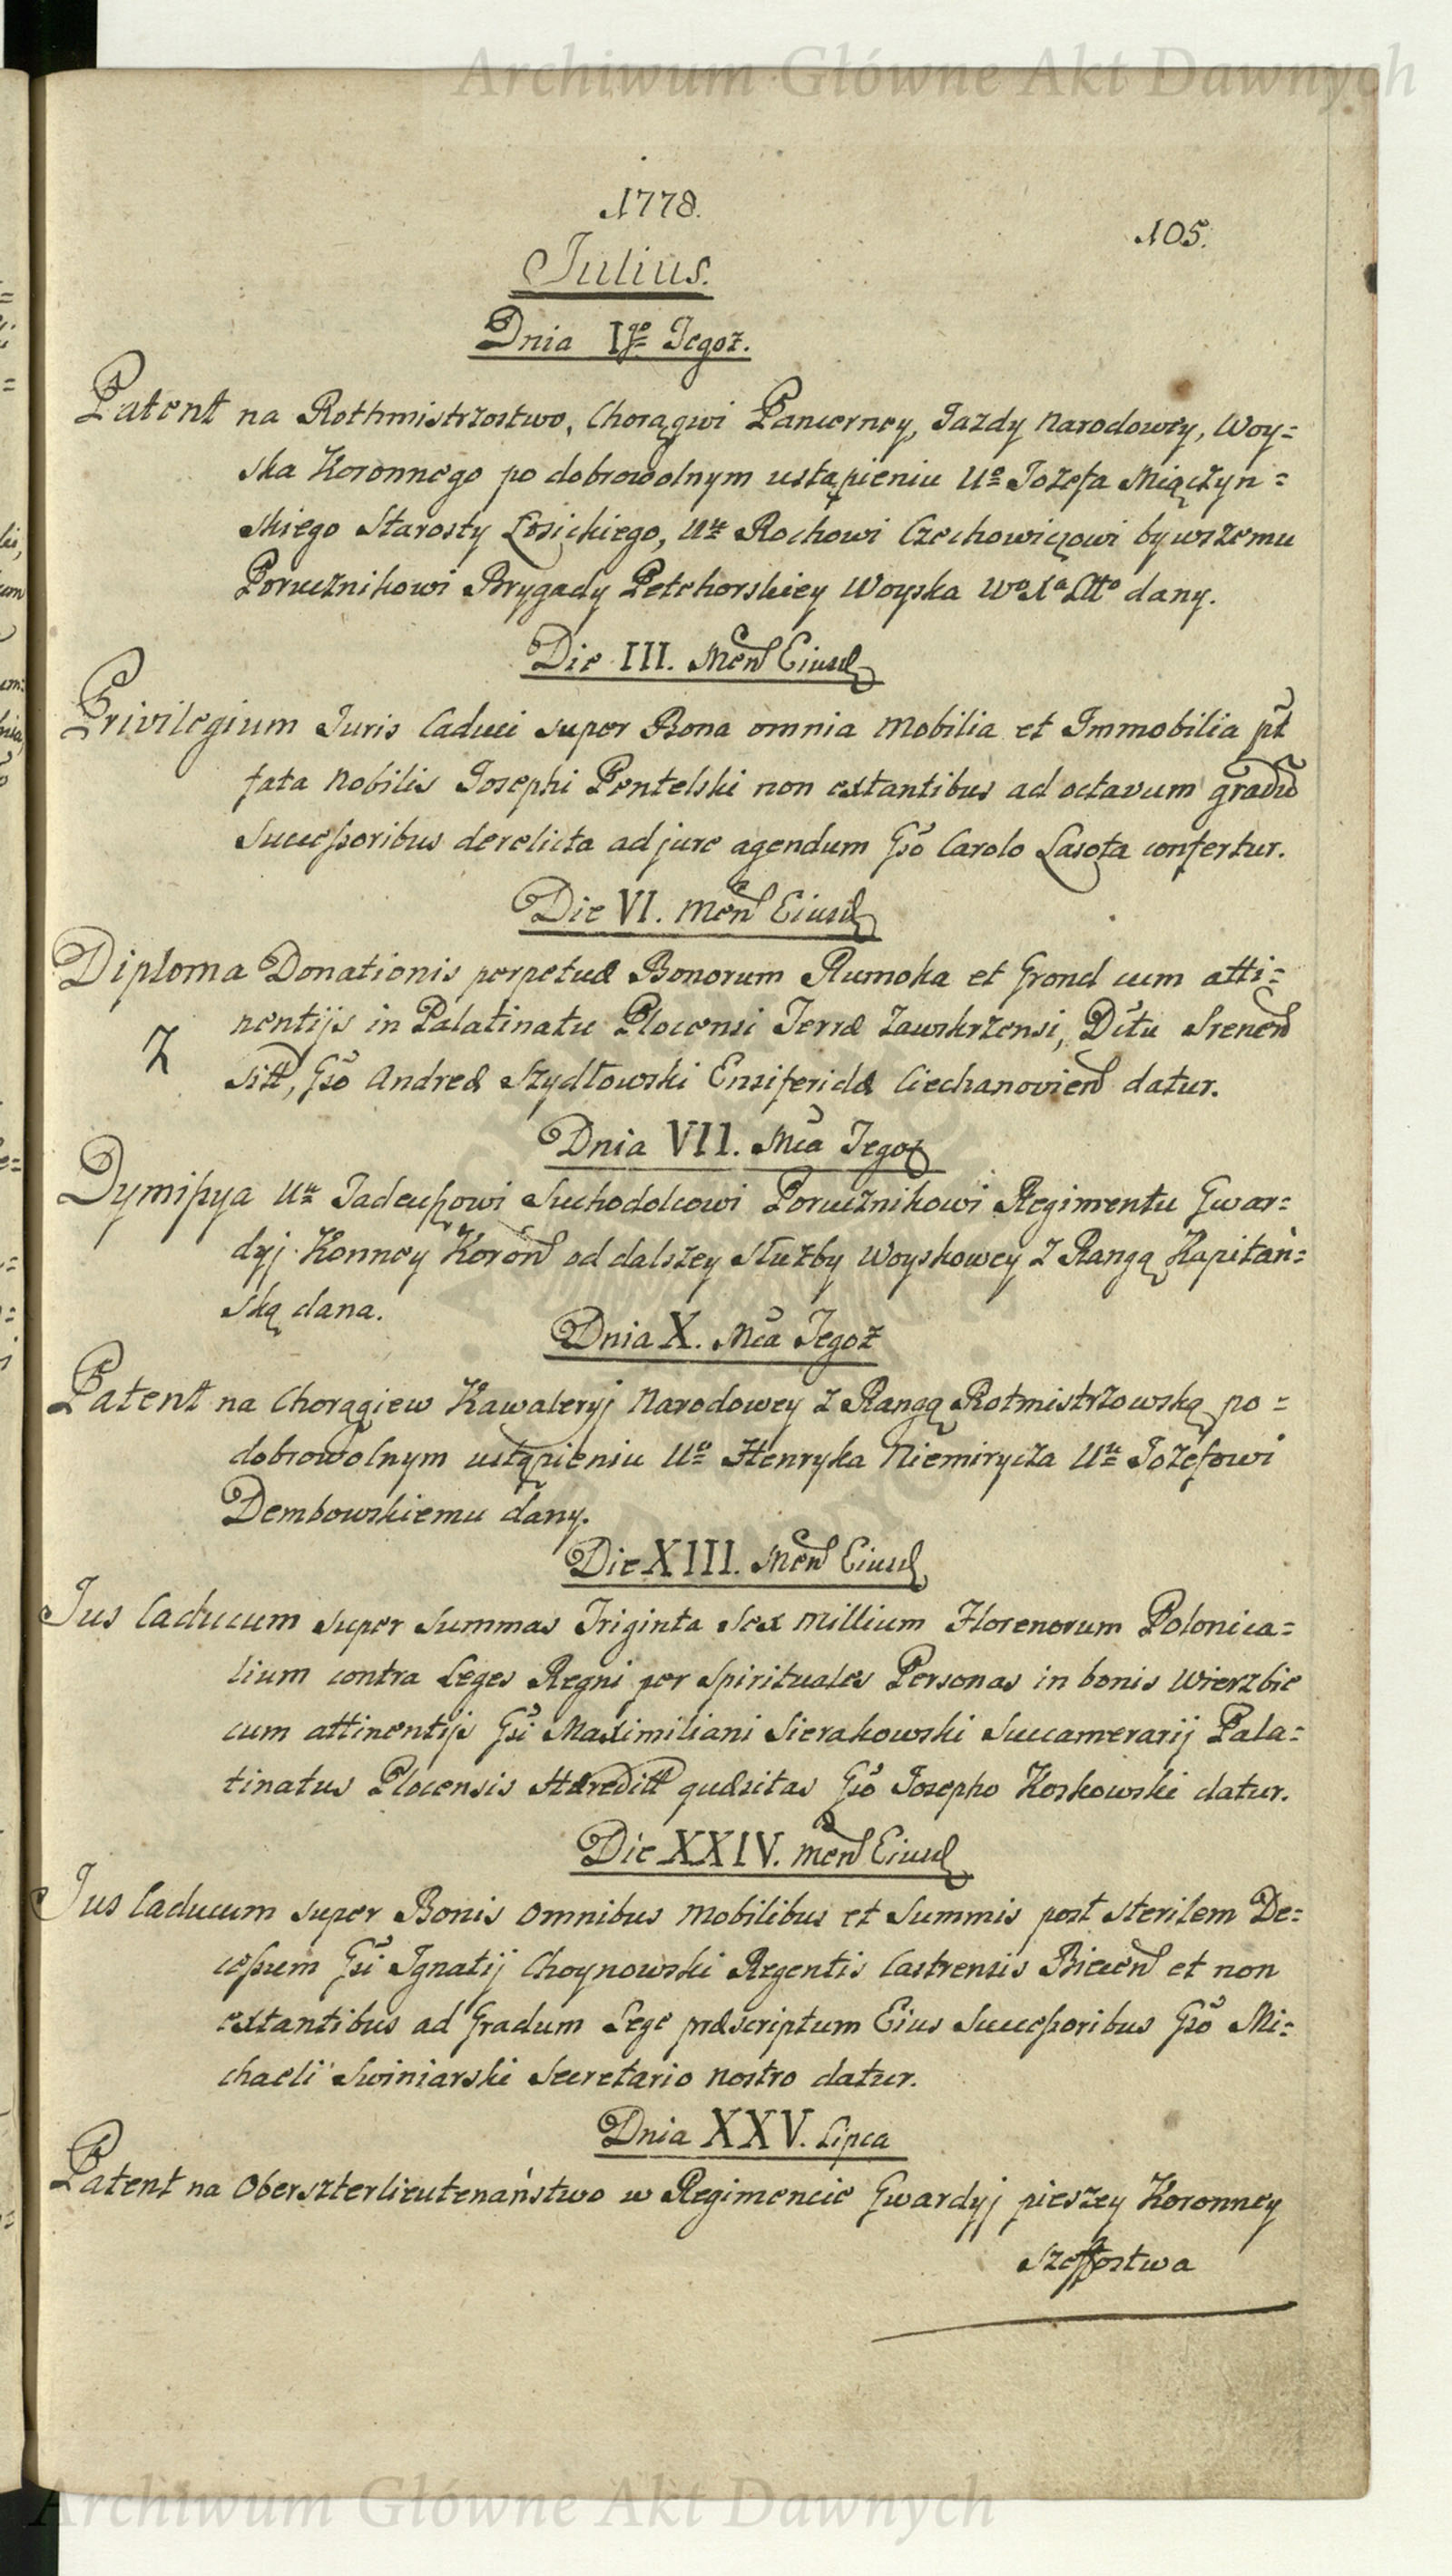 Archiwum Główne Akt Dawnych
1778.
105.
Julius.
Dnia Igo Tegoż.
Patent na Rothmistrzostwo, Chorągwi Pancerney, Jazdy Narodowey, Woy=
ska Koronnego po dobrowolnym ustąpieniu Uo Jozefa Miączyn=
skiego Starosty Łosickiego, Urr Rochowi Czechowiczowi bywszemu
Porucznikowi Brygady Petehorskiey Woyska Wo Xa Litto dany.
Die III. Men Eiusd
Privilegium Juris Caduci super Bona omnia Mobilia et Immobilia pt
fata Nobilis Josephi Pentelski non extantibus ad octavum gradu
Successoribus derelicta ad jure agendum Gso Carolo Lasota confertur.
Die VI. Men Eiusd
Diploma Donationis perpetuæ Bonorum Rumoka et Grond cum atti=
nentijs in Palatinatu Plocensi Terræ Zawskrzensi, Dttu Srenen
Z
sitt, Gso Andreæ Szydłowski Ensiferidæ Ciechanovien datur.
Dnia VII. Mca Tegoż
Dymissya Urr Tadeuszowi Suchodolcowi Porucznikowi Regimentu Gwar=
dyj Konney Koron od dalszey Służby Woyskowey z Rangą Kapitań=
ską dana.
Dnia X. Mca Tegoż
Patent na Chorągiew Kawaleryj Narodowey z Rangą Rotmistrzowską po=
dobrowolnym ustąpieniu Uo Henryka Niemirycza Urr Jozefowi
Dembowskiemu dany.
Die XIII. Men Eiusd
Jus Caducum super Summas Triginta Sex Millium Florenorum Polonica=
lium contra Leges Regni per Spirituales Personas in bonis Wierzbie
cum attinentijs Gsi Maximiliani Sierakowski Succamerarij Pala=
tinatus Plocensis Hæreditt quæsitas Gso Josepho Koskowski datur.
Die XXIV. Men Eiusd
Jus Caducum super Bonis omnibus Mobilibus et Summis post sterilem De=
cessum Gsi Ignatij Choynowski Regentis Castrensis Biecen et non
extantibus ad Gradum Lege præscriptum Eius Successoribus Gso Mi=
chaeli Swiniarski Secretario Nostro datur.
Dnia XXV. Lipca
Patent na Oberszterlieutenaństwo w Regimencie Gwardyj pieszey Koronney
Szeffostwa
Archiwum Główne Akt Dawnych